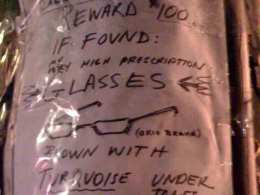 REWARD $100
IF FOUND:
MY
VERY HIGH PRESCRIPTION
GLASSES
(OKIO BRAND)
BROWN WITH
TURQUOISE UNDER